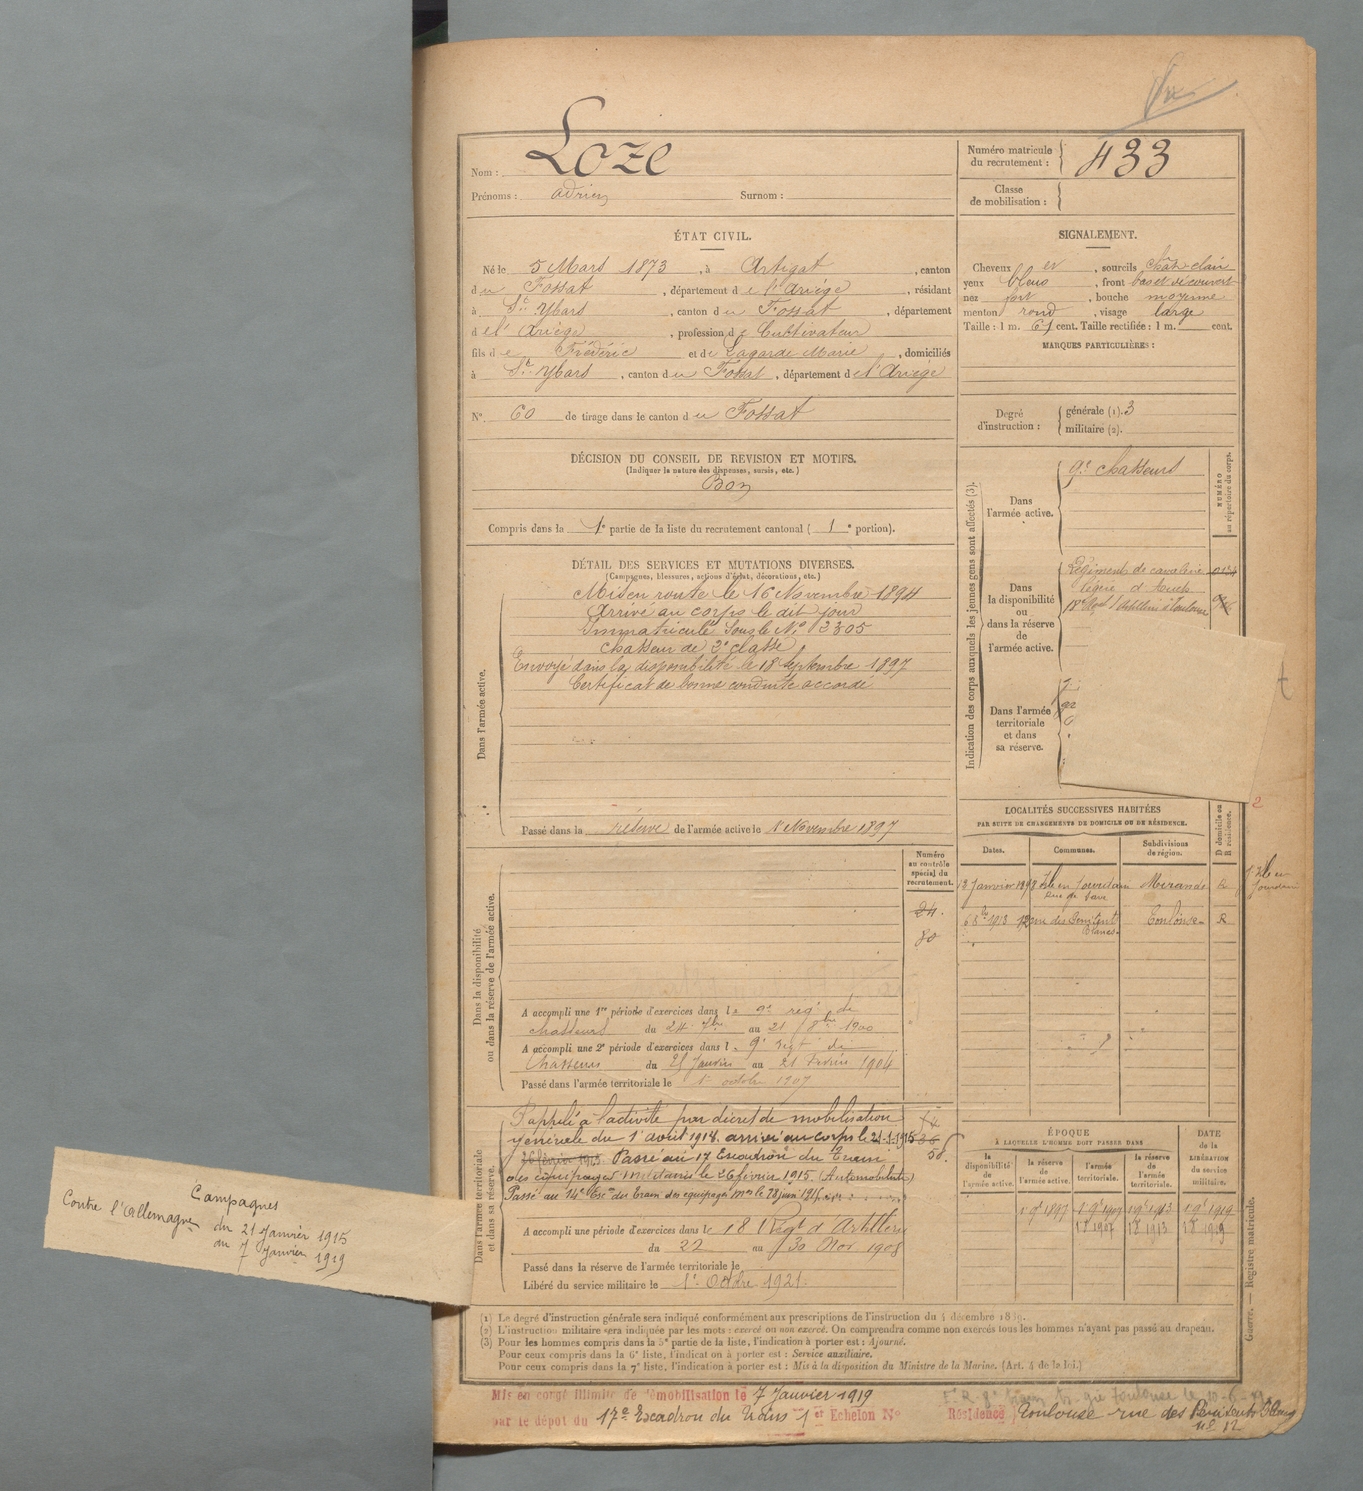 Nom : Loze
Prénoms : Adrien Surnom :
Numéro matricule
du recrutement : 433
Classe
de mobilisation :
ÉTAT CIVIL.
Né le 5 Mars 1873, à Artigat, canton
du Fossat, département de l'Ariège, résidant
à St Ybars, canton du Fossat, département
de l'Ariège, profession de Cultivateur
fils de Frédéric et de Lagarde Marie, domiciliés
à St Ybars, canton du Fossat, département de l'Ariège
N° 60 de tirage dans le canton du Fossat
SIGNALEMENT.
Cheveux et, sourcils chat clair
yeux bleus, front bas et découvert
nez fort, bouche moyenne
menton rond, visage large
Taille : 1 m. 61 cent. Taille rectifiée : 1 m. cent.
MARQUES PARTICULIÈRES :
Degré
d'instruction :
générale (1). 3
militaire (2).
DÉCISION DU CONSEIL DE REVISION ET MOTIFS.
(Indiquer la nature des dispenses, sursis, etc.)
Bon
Compris dans la 1e partie de la liste du recrutement cantonal (1e portion).
DÉTAIL DES SERVICES ET MUTATIONS DIVERSES.
(Campagnes, blessures, actions d'éclat, décorations, etc.)
Dans l'armée active.
Mis en route le 16 Novembre 1894
Arrivé au corps le dit jour
Immatriculé sous le N° 2305
chasseur de 2e classe
Envoyé dans la disponibilité le 18 Septembre 1897
Certificat de bonne conduite accordé
Passé dans la réserve de l'armée active le 1 Novembre 1897
Indication des corps auxquels les jeunes gens sont affectés (3).
NUMÉRO
au répertoire du corps.
Dans
l'armée active.
9e chasseurs
Dans
la disponibilité
ou
dans la réserve
de
l'armée active.
Régiment de cavalerie
légère d'Auch
18e Regt d'Artillerie à Toulouse
Dans l'armée
territoriale
et dans
sa réserve.
LOCALITÉS SUCCESSIVES HABITÉES
PAR SUITE DE CHANGEMENTS DE DOMICILE OU DE RÉSIDENCE.
Dates. Communes. Subdivisions
de région.
D domicile ou
R résidence.
13 Janvier 1898 Isle en Jourdain Mirande R
6 8bre 1913 12 rue des Pénitents Blancs Toulouse R
Dans la disponibilité
ou dans la réserve de l'armée active.
Numéro
au contrôle
spécial du
recrutement.
24.
80
A accompli une 1re période d'exercices dans le 9e reg. de
chasseurs du 24 7bre au 21 8bre 1900
A accompli une 2e période d'exercices dans l. 9e regt de
Chasseurs du 25 Janvier au 21 Février 1904
Passé dans l'armée territoriale le 1er octobre 1907
Dans l'armée territoriale
et dans sa réserve.
Rappelé à l'activité par décret de mobilisation
générale du 1er août 1914. arrivé au corps le 21-1-1915
26 février 1915. Passé au 17 Escadron du Train
des équipages militaires le 26 février 1915 (Automobiliste)
Passé au 14e Esc. du Train des équipages mres le 28 juin 1915
A accompli une période d'exercices dans le 18 Regt d'Artillerie
du 22 au 30 Nov 1908
Passé dans la réserve de l'armée territoriale le
Libéré du service militaire le 1er Octobre 1921.
ÉPOQUE
À LAQUELLE L'HOMME DOIT PASSER DANS
la
disponibilité
de
l'armée active.
la réserve
de
l'armée active.
l'armée
territoriale.
la réserve
de
l'armée
territoriale.
DATE
de la
LIBÉRATION
du service
militaire.
1 9e 1897 1 9e 1907 1 9e 1913 1 9e 1919
1 8 1907 1 8 1913 1 8 1919
Campagnes
Contre l'Allemagne
du 21 Janvier 1915
au 7 Janvier 1919
(1) Le degré d'instruction générale sera indiqué conformément aux prescriptions de l'instruction du 4 décembre 1889.
(2) L'instruction militaire sera indiquée par les mots : exercé ou non exercé. On comprendra comme non exercés tous les hommes n'ayant pas passé au drapeau.
(3) Pour les hommes compris dans la 5e partie de la liste, l'indication à porter est : Ajourné.
Pour ceux compris dans la 6e liste, l'indication à porter est : Service auxiliaire.
Pour ceux compris dans la 7e liste, l'indication à porter est : Mis à la disposition du Ministre de la Marine. (Art. 4 de la loi.)
Guerre. — Registre matricule.
Mis en congé illimité de démobilisation le 7 Janvier 1919
par le dépôt du 17e Escadron du Train 1er Echelon N°
Résidence Toulouse rue des Pénitents Blancs
n° 12